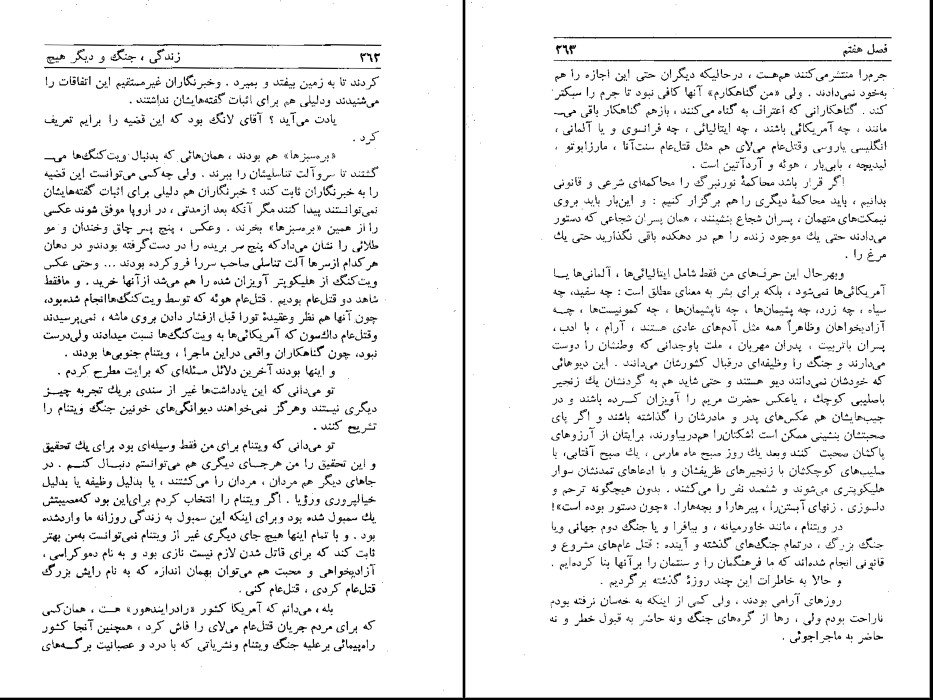 ۲۶۲ زندگی ، جنگ و دیگر هیچ
کردند تا به زمین بیفتد و بمیرد . وخبرنگاران غیرمستقیم این اتفاقات را
می‌شنیدند ودلیلی هم برای اثبات گفته‌هایشان نداشتند .
یادت می‌آید ؟ آقای لانگ بود که این قضیه را برایم تعریف
کرد .
«بره‌سبزها» هم بودند ، همان‌هائی که بدنبال ویت‌کنگ‌ها می‌ـ
گشتند تا سروآلت تناسلیشان را ببرند . ولی چه‌کسی می‌توانست این قضیه
را به خبرنگاران ثابت کند ؟ خبرنگاران هم دلیلی برای اثبات گفته‌هایشان
نمی‌توانستند پیدا کنند مگر آنکه بعد ازمدتی ، در اروپا موفق شوند عکسی
را از همین «بره‌سبزها» بخرند . وعکس ، پنج پسر چاق وخندان و مو
طلائی را نشان می‌داد که پنج سر بریده را در دست‌گرفته بودندو در دهان
هرکدام ازسرها آلت تناسلی صاحب سررا فروکرده بودند ... وحتی عکس
ویت‌کنگ از هلیکوپتر آویزان شده را هم می‌شد ازآنها خرید . و مافقط
شاهد دو قتل‌عام بودیم . قتل‌عام هوئه که توسط ویت‌کنگ‌هاانجام شده‌بود،
چون آنها هم نظر وعقیدهٔ تورا قبل ازفشار دادن بروی ماشه ، نمی‌پرسیدند
وقتل‌عام داك‌سون که آمریکائی‌ها به ویت‌کنگ‌ها نسبت میدادند ولی‌درست
نبود، چون گناهکاران واقعی دراین ماجرا ، ویتنام جنوبی‌ها بودند .
و اینها بودند آخرین دلائل مسئله‌ای که برایت مطرح کردم .
تو می‌دانی که این یادداشت‌ها غیر از سندی بریك تجربه چیـز
دیگری نیستند وهرگز نمی‌خواهند دیوانگی‌های خونین جنگ ویتنام را
تشریح کنند .
تو می‌دانی که ویتنام برای من فقط وسیله‌ای بود برای یك تحقیق
و این تحقیق را من هرجـای دیگری هم می‌توانستم دنبـال کنـم . در
جاهای دیگر هم مردان ، مردان را می‌کشتند ، یا بدلیل وظیفه یا بدلیل
خیالپروری ورؤیا . اگر ویتنام را انتخاب کردم برای‌این بود که‌مصیبتش
یك سمبول شده بود وبرای اینکه این سمبول به زندگی روزانه ما واردشده
بود . و با تمام اینها هیچ جای دیگری غیر از ویتنام نمی‌توانست به‌من بهتر
ثابت کند که برای قاتل شدن لازم نیست نازی بود و به نام دموکراسی ،
آزادیخواهی و محبت هم می‌توان بهمان اندازه که به نام رایش بزرگ
قتل‌عام کردی ، قتل‌عام کنی .
بله ، می‌دانم که آمریکا کشور «رادرایندهور» هست ، همان‌کسی
که برای مردم جریان قتل‌عام می‌لای را فاش کرد ، همچنین آنجا کشور
راه‌پیمائی برعلیه جنگ ویتنام ونشریاتی که با درد و عصبانیت برگـه‌های
فصل هفتم ۲۶۳
جرم‌را منتشرمی‌کنند هم‌هست ، درحالیکه دیگران حتی این اجازه را هم
به‌خود نمی‌دادند . ولی «من گناهکارم» آنها کافی نبود تا جرم را سبکتر
کند . گناهکارانی که اعتراف به گناه می‌کنند ، بازهم گناهکار باقی می‌ـ
مانند ، چه آمریکائی باشند ، چه ایتالیائی ، چه فرانسوی و یا آلمانی ،
انگلیسی یاروسی وقتل‌عام می‌لای هم مثل قتل‌عام سنت‌آنا ، مارزابوتو ،
لیدیچه ، بابی‌یار ، هوئه و آردآتین است .
اگر قرار باشد محاکمهٔ نورنبرگ را محاکمه‌ای شرعی و قانونی
بدانیم ، باید محاکمهٔ دیگری را هم برگزار کنیم : و این‌بار باید بروی
نیمکت‌های متهمان ، پسران شجاع بنشینند ، همان پسران شجاعی که دستور
می‌دادند حتی یك موجود زنده را هم در دهکده باقی نگذارید حتی یك
مرغ را .
وبهرحال این حرف‌های من فقط شامل ایتالیائی‌ها ، آلمانی‌ها یـا
آمریکائی‌ها نمی‌شود ، بلکه برای بشر به معنای مطلق است : چه سفید، چه
سیاه ، چه زرد، چه پشیمان‌ها ، چه ناپشیمان‌ها ، چه کمونیست‌ها ، چـه
آزادیخواهان وظاهراً همه مثل آدم‌های عادی هستند ، آرام ، با ادب،
پسران باتربیت ، پدران مهربان ، ملت باوجدانی که وطنشان را دوست
می‌دارند و جنگ را وظیفه‌ای درقبال کشورشان می‌دانند . این دیوهائی
که خودشان نمی‌دانند دیو هستند و حتی شاید هم به گردنشان یك زنجیر
باصلیبی کوچك ، یاعکس حضرت مریم را آویزان کـرده باشند و در
جیب‌هایشان هم عکس‌های پدر و مادرشان را گذاشته باشند و اگر پای
صحبتشان بنشینی ممکن است اشکتان‌را هم‌دربیاورند، برایتان از آرزوهای
پاکشان صحبت کنند وبعد یك روز صبح ماه مارس ، یك صبح آفتابی، با
صلیب‌های کوچکشان با زنجیرهای ظریفشان و با ادعاهای تمدنشان سوار
هلیکوپتری می‌شوند و ششصد نفر را می‌کشند . بدون هیچگونه ترحم و
دلسوزی . زنهای آبستن‌را ، پیرهارا و بچه‌هارا. «چون دستور بوده است»!
در ویتنام ، مانند خاورمیانه ، و بیافرا و یا جنگ دوم جهانی ویا
جنگ بزرگ ، درتمام جنگ‌های گذشته و آینده : قتل عام‌های مشروع و
قانونی انجام شده‌اند که ما فرهنگمان را و سنتمان را برآنها بنا کرده‌ایم .
و حالا به خاطرات این چند روزهٔ گذشته برگردیم .
روزهای آرامی بودند . ولی کمی از اینکه به خه‌سان نرفته بودم
ناراحت بودم ولی ، رها از گره‌های جنگ ونه حاضر به قبول خطر و نه
حاضر به ماجراجوئی .